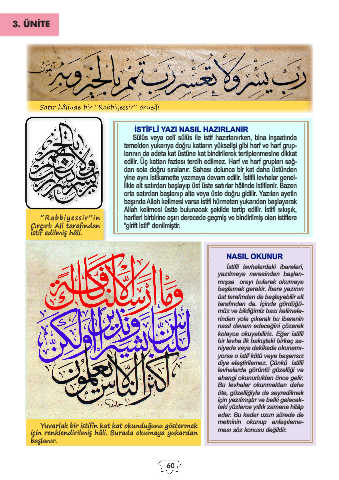 3. ÜNİTE
رب يسر ولا تعسر رب تمم بالخير
Satır hâlinde bir "Rabbiyessir" örneği
"Rabbiyessir"in
Çırçırlı Ali tarafından
istif edilmiş hâli.
İSTİFLİ YAZI NASIL HAZIRLANIR
Sülüs veya celî sülüs ile istif hazırlanırken, bina inşaatında
temelden yukarıya doğru katların yükselişi gibi harf ve harf grup-
larının da adeta kat üstüne kat bindirilerek tertiplenmesine dikkat
edilir. Üç kattan fazlası tercih edilmez. Harf ve harf grupları sağ-
dan sola doğru sıralanır. Sahası dolunca bir kat daha üstünden
yine aynı istikamette yazmaya devam edilir. İstifli levhalar genel-
likle alt satırdan başlayıp üst üste satırlar hâlinde istiflenir. Bazen
orta satırdan başlanıp alta veya üste doğru gidilir. Yazılan ayetin
başında Allah kelimesi varsa istifi hürmeten yukarıdan başlayarak
Allah kelimesi üstte bulunacak şekilde tertip edilir. İstifi sıkışık,
harfleri birbirine aşırı derecede geçmiş ve bindirilmiş olan istiflere
"girift istif" denilmiştir.
NASIL OKUNUR
İstifli levhalardaki ibareleri,
yazılmaya neresinden başlan-
mışsa orayı bularak okumaya
başlamak gerekir. İbare yazının
üst tarafından da başlayabilir alt
tarafından da. İçinde gördüğü-
müz ve bildiğimiz bazı kelimele-
rinden yola çıkarak bu ibarenin
nasıl devam edeceğini çözerek
kolayca okuyabiliriz. Eğer istifli
bir levha ilk bakıştaki birkaç sa-
niyede veya dakikada okunamı-
yorsa o istif kötü veya başarısız
diye eleştirilemez. Çünkü istifli
levhalarda görüntü güzelliği ve
ahengi okunurluktan önce gelir.
Bu levhalar okunmaktan daha
öte, güzelliğiyle de seyredilmek
için yazılmıştır ve belki gelecek-
teki yüzlerce yıllık zamana hitap
eder. Bu kadar uzun sürede de
metninin okunup anlaşılama-
ması söz konusu değildir.
وما أرسلناك إلا كافة
للناس بشيرا ونذيرا ولكن
أكثر الناس لا يعلمون
Yuvarlak bir istifin kat kat okunduğunu göstermek
için renklendirilmiş hâli. Burada okumaya yukarıdan
başlanır.
60